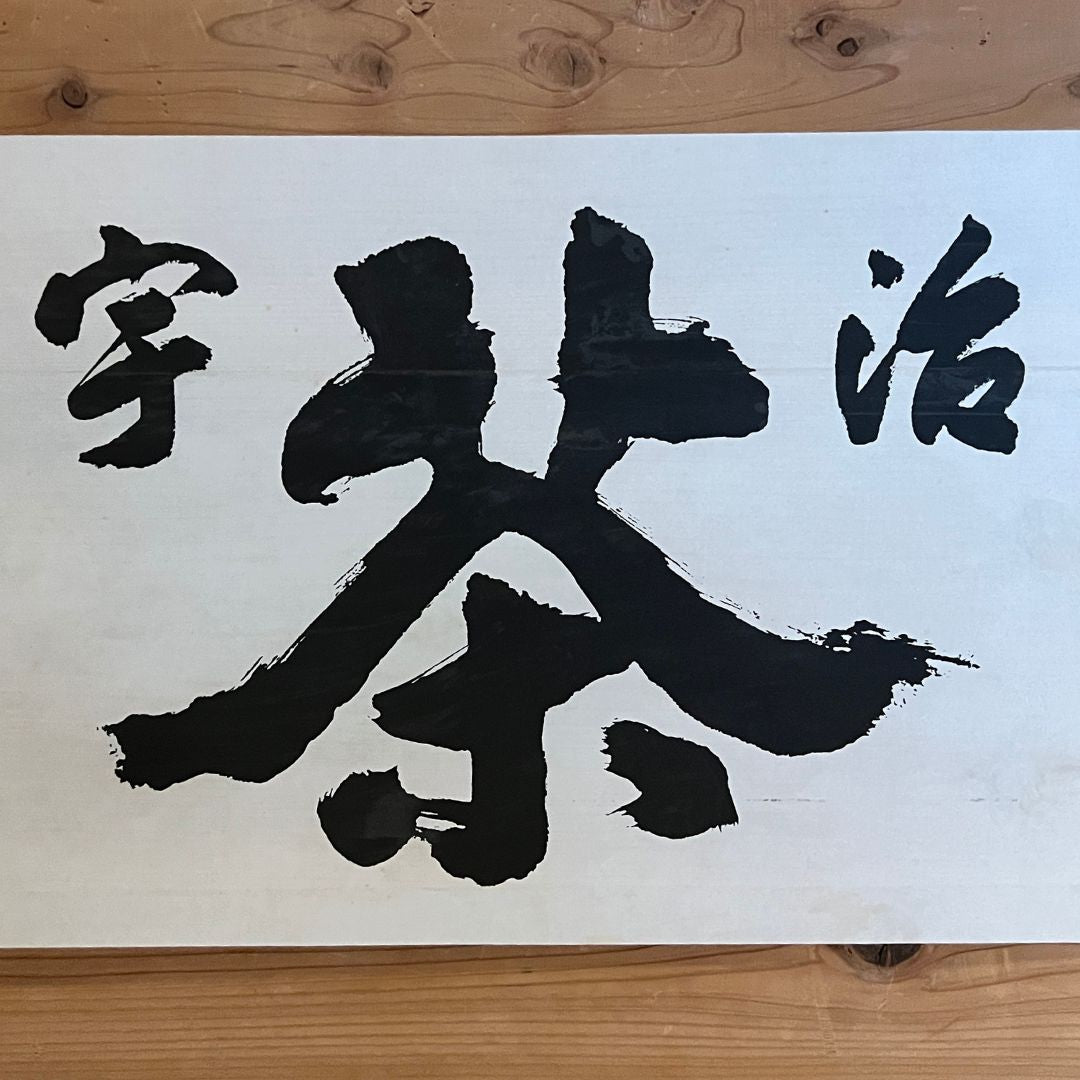 宇治
茶